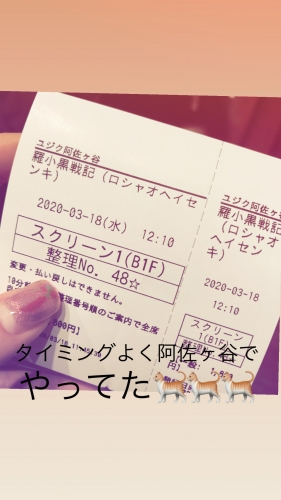 ユジク阿佐ヶ谷
羅小黒戦記（ロシャオヘイセ
ンキ）
2020-03-18(水) 12:10
スクリーン1(B1F)
整理No. 48☆
変更・払い戻しはできません。
番号順のご案内で全席
ユジク阿佐ヶ
羅小黒戦
(ロシャオ
ヘイセン
キ)
2020-03-18
12:10
スクリーン
1(B1F)
タイミングよく阿佐ヶ谷で
やってた🐈🐈🐈